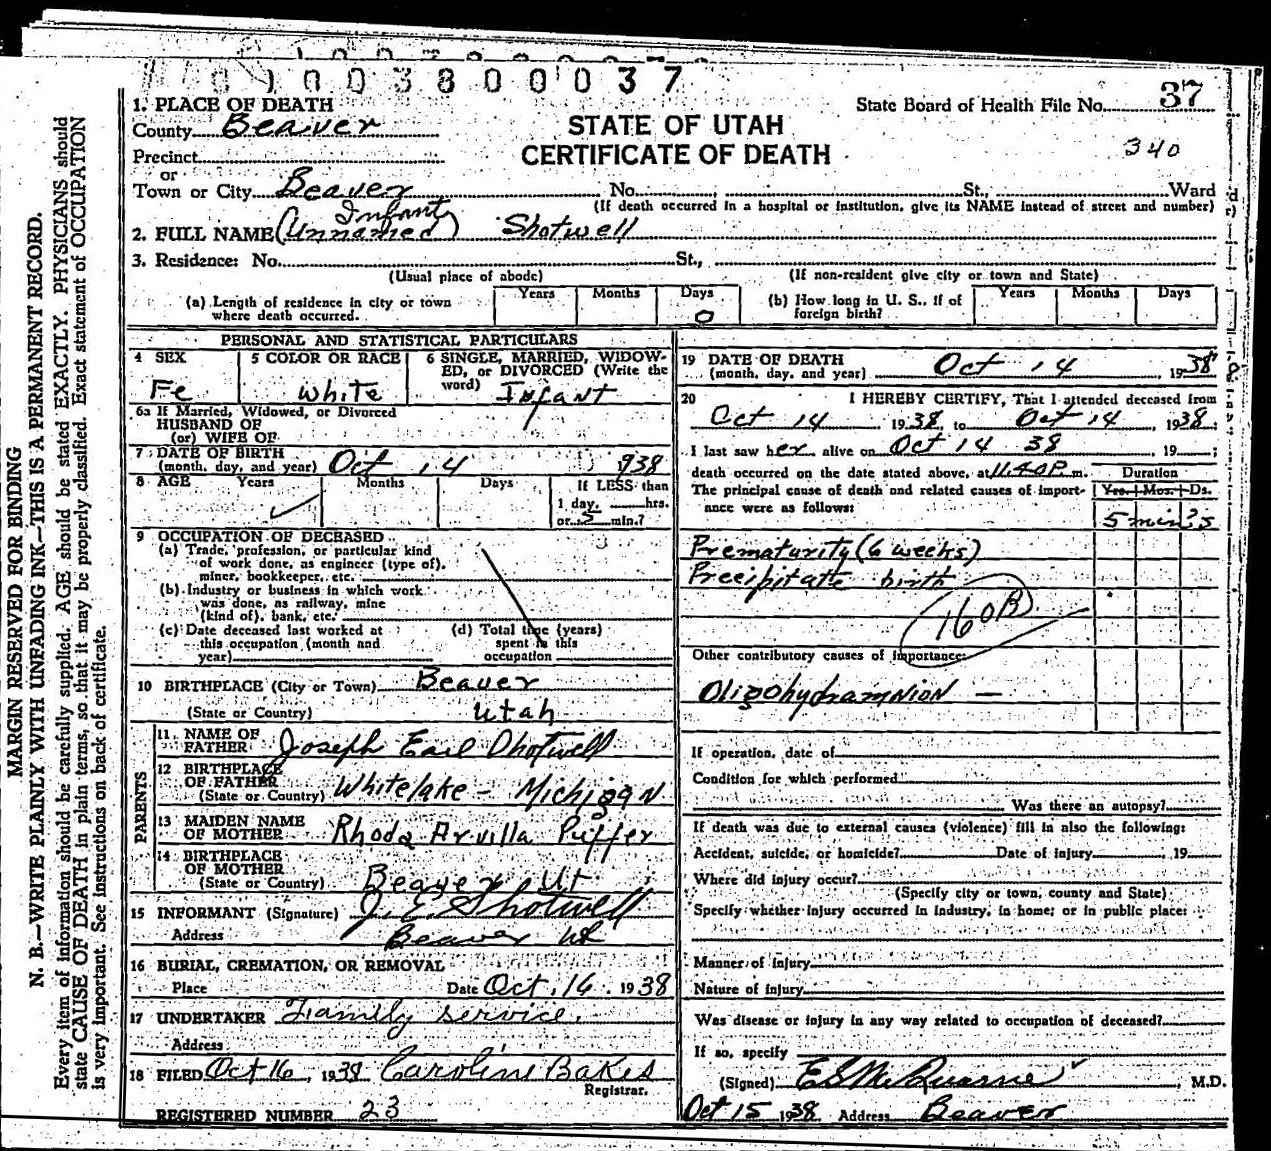 010038 00037
1. PLACE OF DEATH
State Board of Health File No. 37
County Beaver
STATE OF UTAH
Precinct
CERTIFICATE OF DEATH
340
or
Town or City Beaver No. St., Ward
(If death occurred in a hospital or institution, give its NAME instead of street and number)
Infant
2. FULL NAME (Unnamed) Shotwell
3. Residence: No. St.,
(Usual place of abode) (If non-resident give city or town and State)
(a) Length of residence in city or town where death occurred. Years Months Days 0
(b) How long in U. S., if of foreign birth? Years Months Days
PERSONAL AND STATISTICAL PARTICULARS
4 SEX Fe
5 COLOR OR RACE White
6 SINGLE, MARRIED, WIDOW-
ED, or DIVORCED (Write the
word) Infant
6a If Married, Widowed, or Divorced
HUSBAND OF
(or) WIFE OF
7 DATE OF BIRTH
(month, day, and year) Oct 14 938
8 AGE Years Months Days If LESS than
1 day, hrs.
or 5 min.?
9 OCCUPATION OF DECEASED
(a) Trade, profession, or particular kind
of work done, as engineer (type of),
miner, bookkeeper, etc.
(b) Industry or business in which work
was done, as railway, mine
(kind of), bank, etc.
(c) Date deceased last worked at
this occupation (month and
year)
(d) Total time (years)
spent in this
occupation
10 BIRTHPLACE (City or Town) Beaver
(State or Country) Utah
PARENTS
11. NAME OF
FATHER Joseph Earl Shotwell
12 BIRTHPLACE
OF FATHER
(State or Country) Whitelake - Michigan
13 MAIDEN NAME
OF MOTHER Rhoda Arvilla Puffer
14 BIRTHPLACE
OF MOTHER
(State or Country) Beaver Ut
15 INFORMANT (Signature) J. E. Shotwell
Address Beaver Ut
16 BURIAL, CREMATION, OR REMOVAL
Place Date Oct. 16. 1938
17 UNDERTAKER Family service.
Address
18 FILED Oct 16, 1938 Caroline Bakes
Registrar.
REGISTERED NUMBER 23
19 DATE OF DEATH
(month, day, and year) Oct 14, 1938
20 I HEREBY CERTIFY, That I attended deceased from
Oct 14 1938, to Oct 14, 1938;
I last saw her alive on Oct 14 38, 19 ;
death occurred on the date stated above, at 11.40P. m.
Duration
The principal cause of death and related causes of import-
ance were as follows:
Yrs. Mos. Ds.
5 min's
Prematurity (6 weeks)
Precipitate birth
160B
Other contributory causes of importance:
Oligohydramnion —
If operation, date of
Condition for which performed
Was there an autopsy?
If death was due to external causes (violence) fill in also the following:
Accident, suicide, or homicide? Date of injury , 19
Where did injury occur?
(Specify city or town, county and State)
Specify whether injury occurred in industry, in home, or in public place:
Manner of injury
Nature of injury
Was disease or injury in any way related to occupation of deceased?
If so, specify
(Signed) E S McQuarrie, M.D.
Oct 15 1938 Address Beaver
MARGIN RESERVED FOR BINDING
N. B.—WRITE PLAINLY WITH UNFADING INK—THIS IS A PERMANENT RECORD.
Every item of information should be carefully supplied. AGE should be stated EXACTLY. PHYSICIANS should
state CAUSE OF DEATH in plain terms, so that it may be properly classified. Exact statement of OCCUPATION
is very important. See instructions on back of certificate.